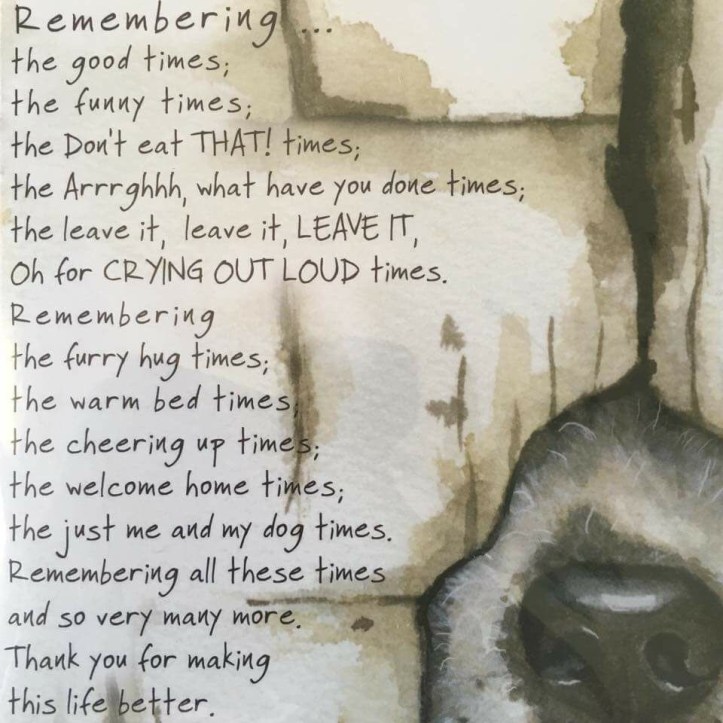 Remembering ...
the good times;
the funny times;
the Don't eat THAT! times;
the Arrrghhh, what have you done times;
the leave it, leave it, LEAVE IT,
Oh for CRYING OUT LOUD times.
Remembering
the furry hug times;
the warm bed times;
the cheering up times;
the welcome home times;
the just me and my dog times.
Remembering all these times
and so very many more.
Thank you for making
this life better.